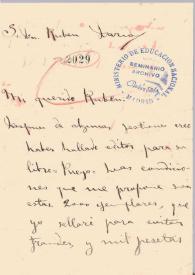 S. Don Rubén Darío
2029
MINISTERIO DE EDUCACIÓN NACIONAL
SEMINARIO
ARCHIVO
Rubén Darío
MADRID
Mi querido Rubén:
Despues de algunas gestiones creo
haber hallado editor para su
libro. Pueyo. Las condicio
nes que me propone son
estas 2000 ejemplares, que
yo sellaré para evitar
fraudes, y mil pesetas